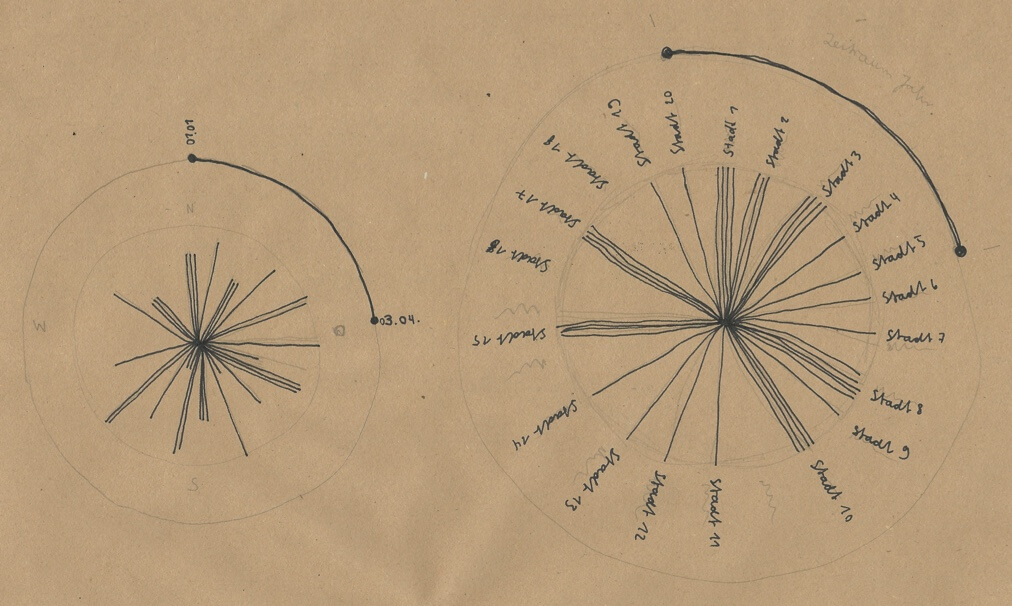 01.01
N
W
O
S
03.04.
Zeitraum Jahr
Stadt 1
Stadt 2
Stadt 3
Stadt 4
Stadt 5
Stadt 6
Stadt 7
Stadt 8
Stadt 9
Stadt 10
Stadt 11
Stadt 12
Stadt 13
Stadt 14
Stadt 15
Stadt 17
Stadt 18
Stadt 19
Stadt 20